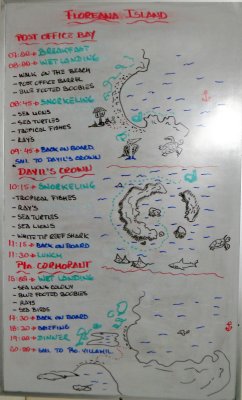 FLOREANA ISLAND
POST OFFICE BAY
07:00 → BREAKFAST
08:00 → WET LANDING
- WALK ON THE BEACH
- POST OFFICE BARREL
- BLUE FOOTED BOOBIES
08:45 → SNORKELING
- SEA LIONS
- SEA TURTLES
- TROPICAL FISHES
- RAYS
09:45 → BACK ON BOARD
SAIL TO DAVIL'S CROWN
DAVIL'S CROWN
10:15 → SNORKELING
- TROPICAL FISHES
- RAYS
- SEA TURTLES
- SEA LIONS
- WHITE TIP REEF SHARK
11:15 → BACK ON BOARD
11:30 → LUNCH
PTA CORMORANT
15:00 → WET LANDING
- SEA LIONS COLONY
- BLUE FOOTED BOOBIES
- RAYS
- SEA BIRDS
17:30 → BACK ON BOARD
18:30 → BRIEFING
19:00 → DINNER
20:00 → SAIL TO PTO. VILLAMIL